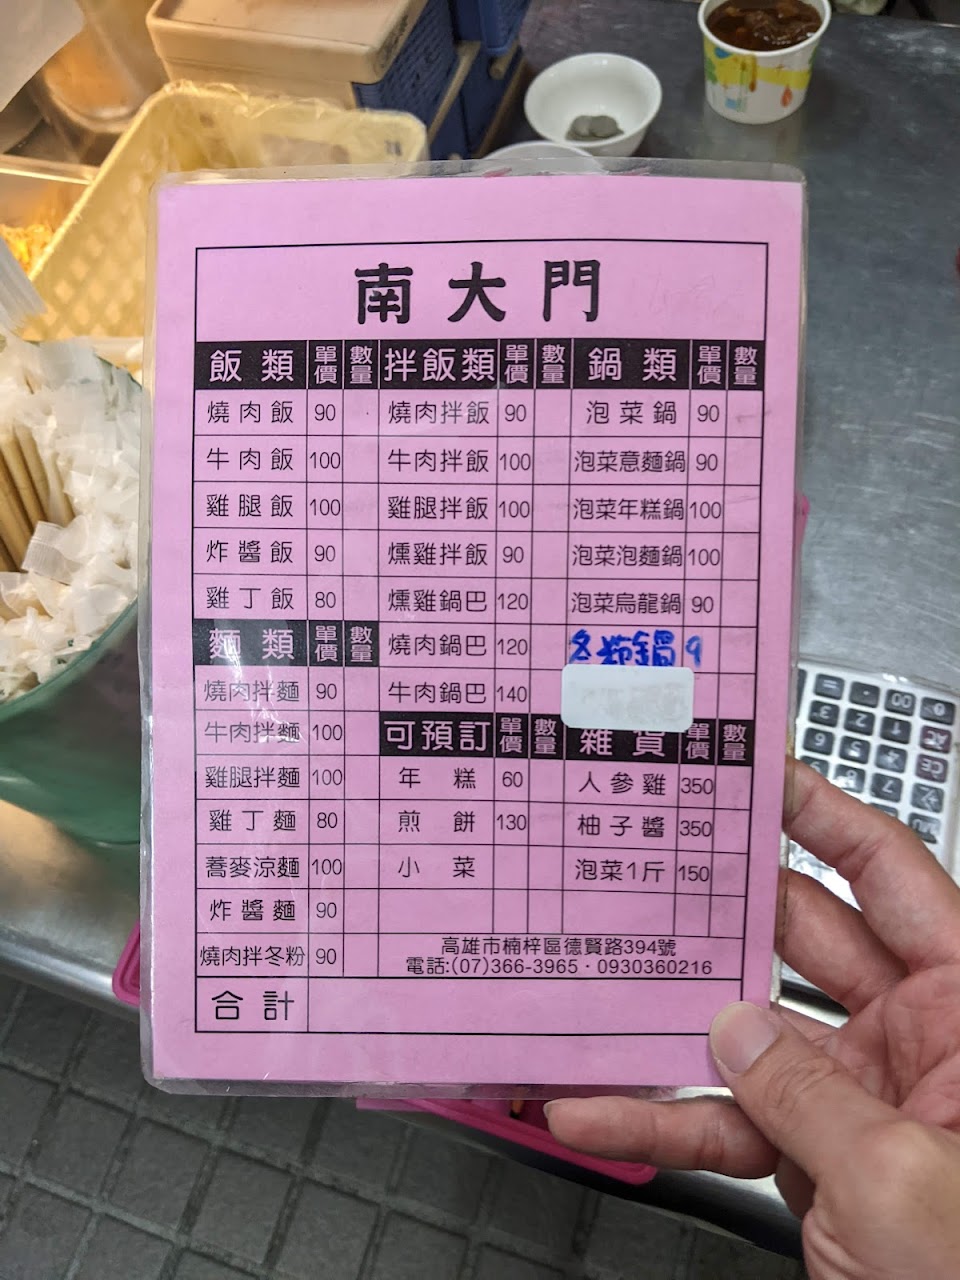 南大門
飯類 單價 數量 拌飯類 單價 數量 鍋類 單價 數量
燒肉飯 90 燒肉拌飯 90 泡菜鍋 90
牛肉飯 100 牛肉拌飯 100 泡菜意麵鍋 90
雞腿飯 100 雞腿拌飯 100 泡菜年糕鍋 100
炸醬飯 90 燻雞拌飯 90 泡菜泡麵鍋 100
雞丁飯 80 燻雞鍋巴 120 泡菜烏龍鍋 90
麵類 單價 數量 燒肉鍋巴 120 冬粉鍋 9
燒肉拌麵 90 牛肉鍋巴 140
牛肉拌麵 100 可預訂 單價 數量 雜貨 單價 數量
雞腿拌麵 100 年糕 60 人參雞 350
雞丁麵 80 煎餅 130 柚子醬 350
蕎麥涼麵 100 小菜 泡菜1斤 150
炸醬麵 90
燒肉拌冬粉 90 高雄市楠梓區德賢路394號
電話:(07)366-3965·0930360216
合計